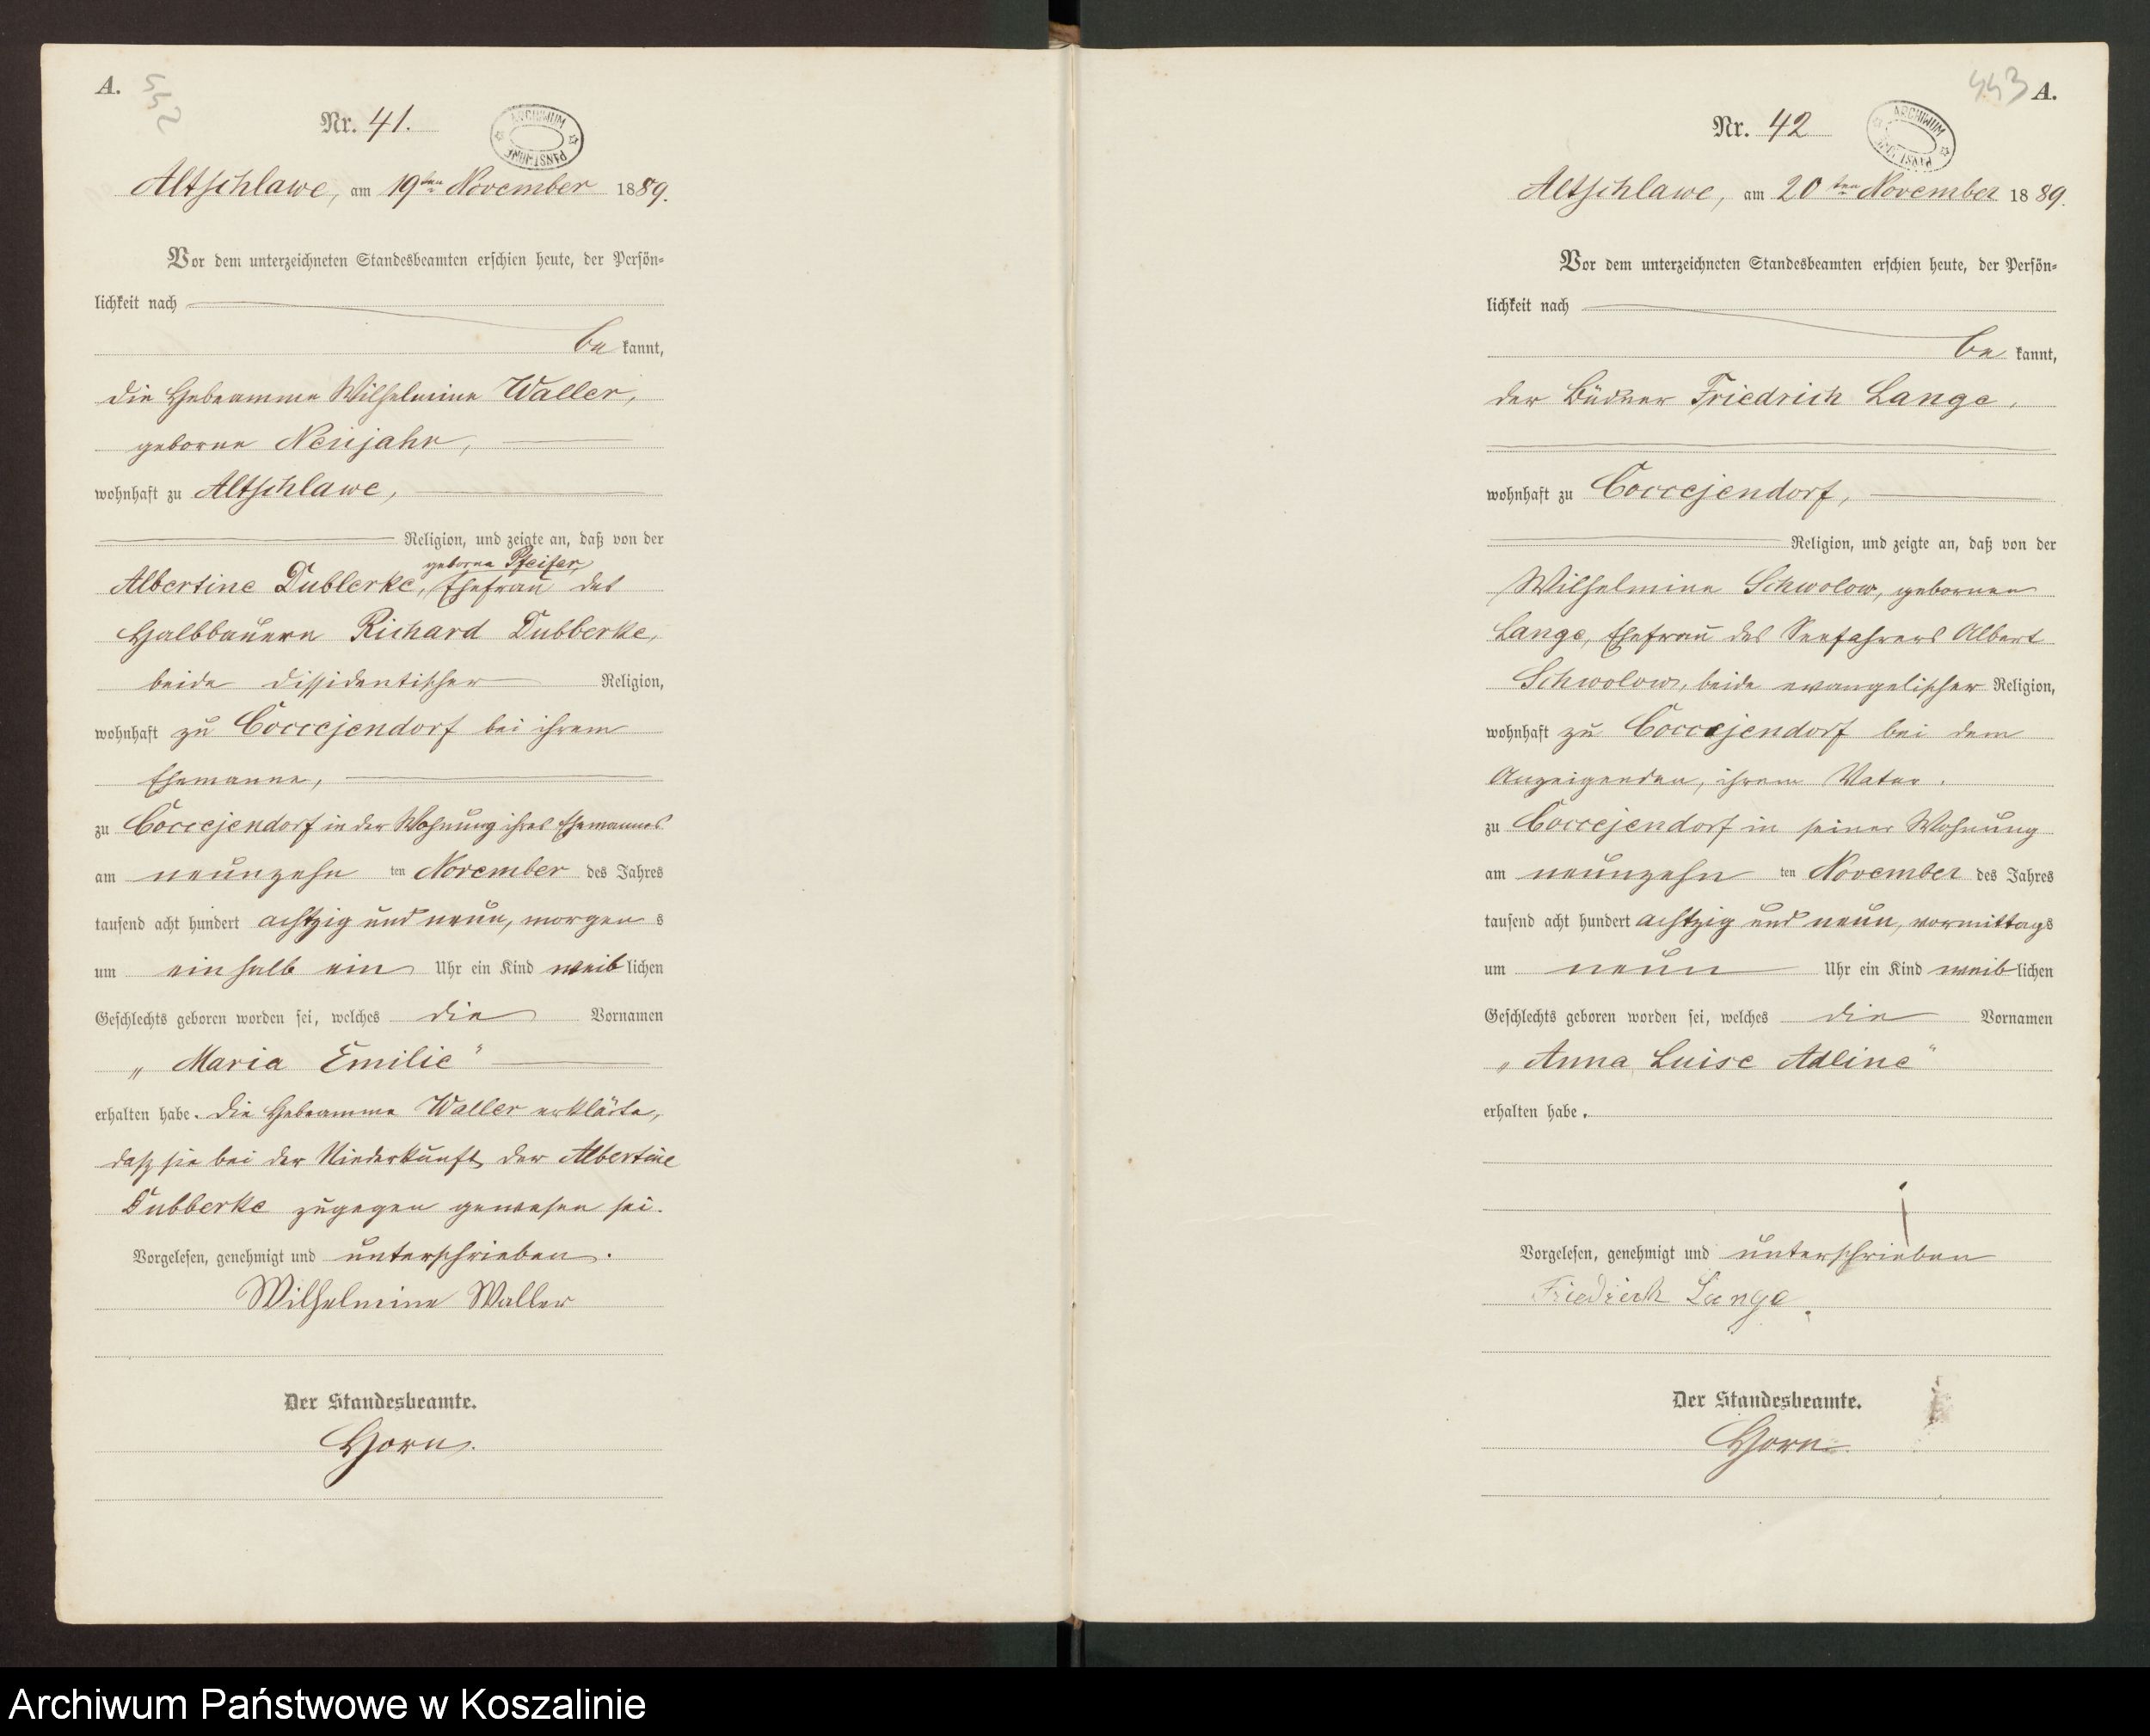 A.
552
Nr. 41.
ARCHIWUM PAŃSTWOWE
Altschlawe, am 19ten November 1889.
Vor dem unterzeichneten Standesbeamten erschien heute, der Persön-
lichkeit nach
be kannt,
die Hebeamme Wilhelmine Waller,
geborne Neujahr,
wohnhaft zu Altschlawe,
Religion, und zeigte an, daß von der
geborne Pfeifer,
Albertine Dublerke, Ehefrau des
Halbbauern Richard Dubberke,
beide dissidentischer Religion,
wohnhaft zu Coccejendorf bei ihrem
Ehemanne,
zu Coccejendorf in der Wohnung ihres Ehemannes
am neunzehn ten November des Jahres
tausend acht hundert achtzig und neun, morgen s
um ein halb ein Uhr ein Kind weiblichen
Geschlechts geboren worden sei, welches die Vornamen
„Maria Emilie"
erhalten habe. Die Hebeamme Waller erklärte,
daß sie bei der Niederkunft der Albertine
Dubberke zugegen gewesen sei.
Vorgelesen, genehmigt und unterschrieben.
Wilhelmine Waller
Der Standesbeamte.
Horn.
443 A.
Nr. 42
ARCHIWUM PAŃSTWOWE
Altschlawe, am 20ten November 1889.
Vor dem unterzeichneten Standesbeamten erschien heute, der Persön-
lichkeit nach
be kannt,
der Büdner Friedrich Lange,
wohnhaft zu Coccejendorf,
Religion, und zeigte an, daß von der
Wilhelmine Schwolow, gebornen
Lange, Ehefrau des Seefahrers Albert
Schwolow, beide evangelischer Religion,
wohnhaft zu Coccejendorf bei dem
Anzeigenden, ihrem Vater.
zu Coccejendorf in seiner Wohnung
am neunzehn ten November des Jahres
tausend acht hundert achtzig und neun, vormittags
um neun Uhr ein Kind weiblichen
Geschlechts geboren worden sei, welches die Vornamen
„Anna Luise Adline"
erhalten habe.
Vorgelesen, genehmigt und unterschrieben
Friedrich Lange.
Der Standesbeamte.
Horn.
Archiwum Państwowe w Koszalinie